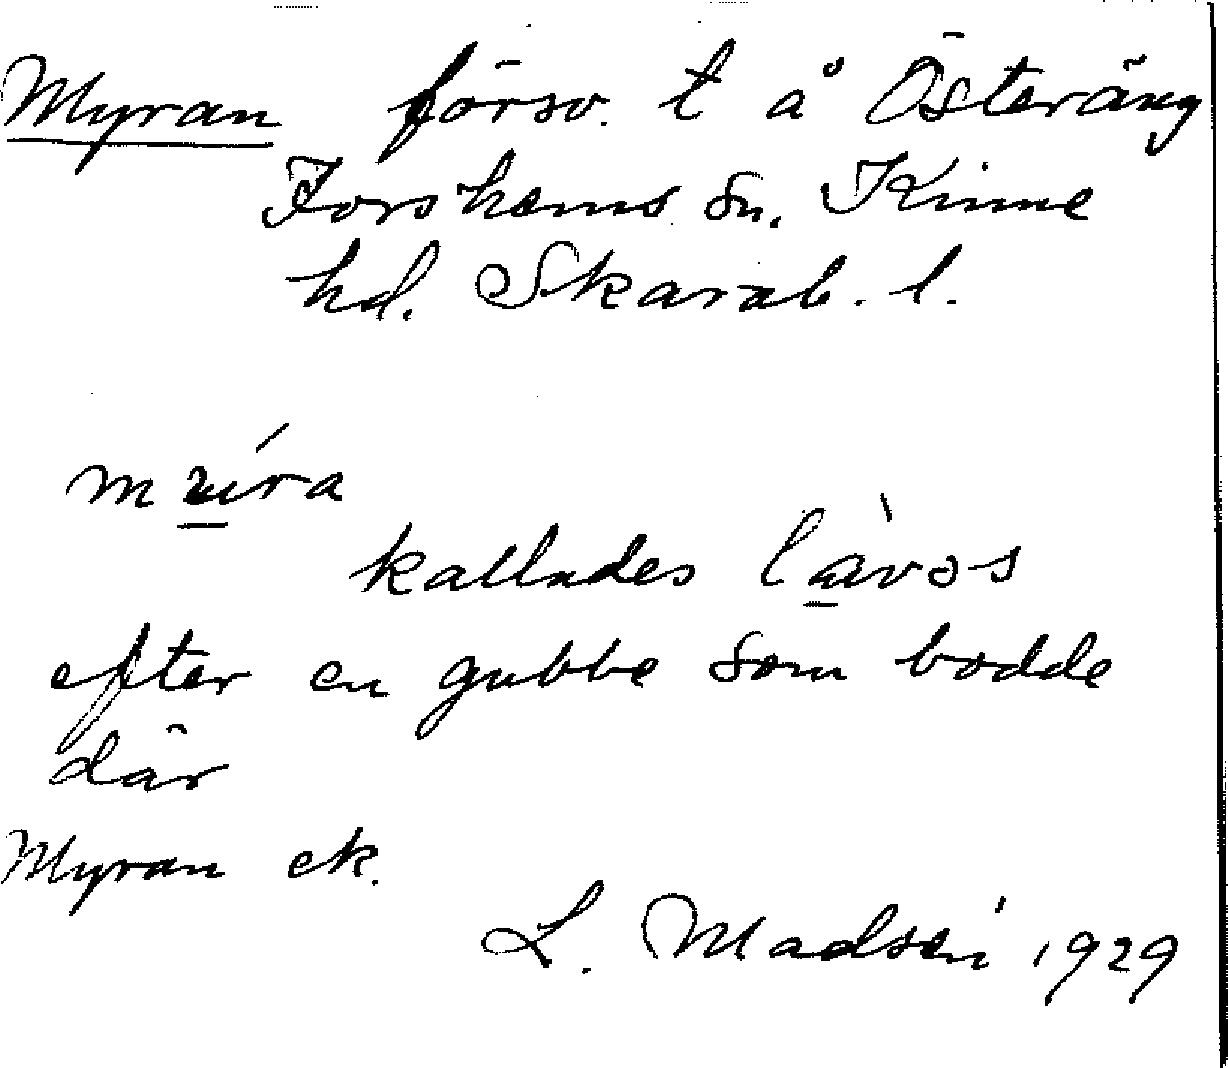 Myran försv. t å Österäng
Forshems sn. Kinne
hd. Skarab. l.
kallades
efter en gubbe som bodde
där
Myran ek.
L. Madsén 1929